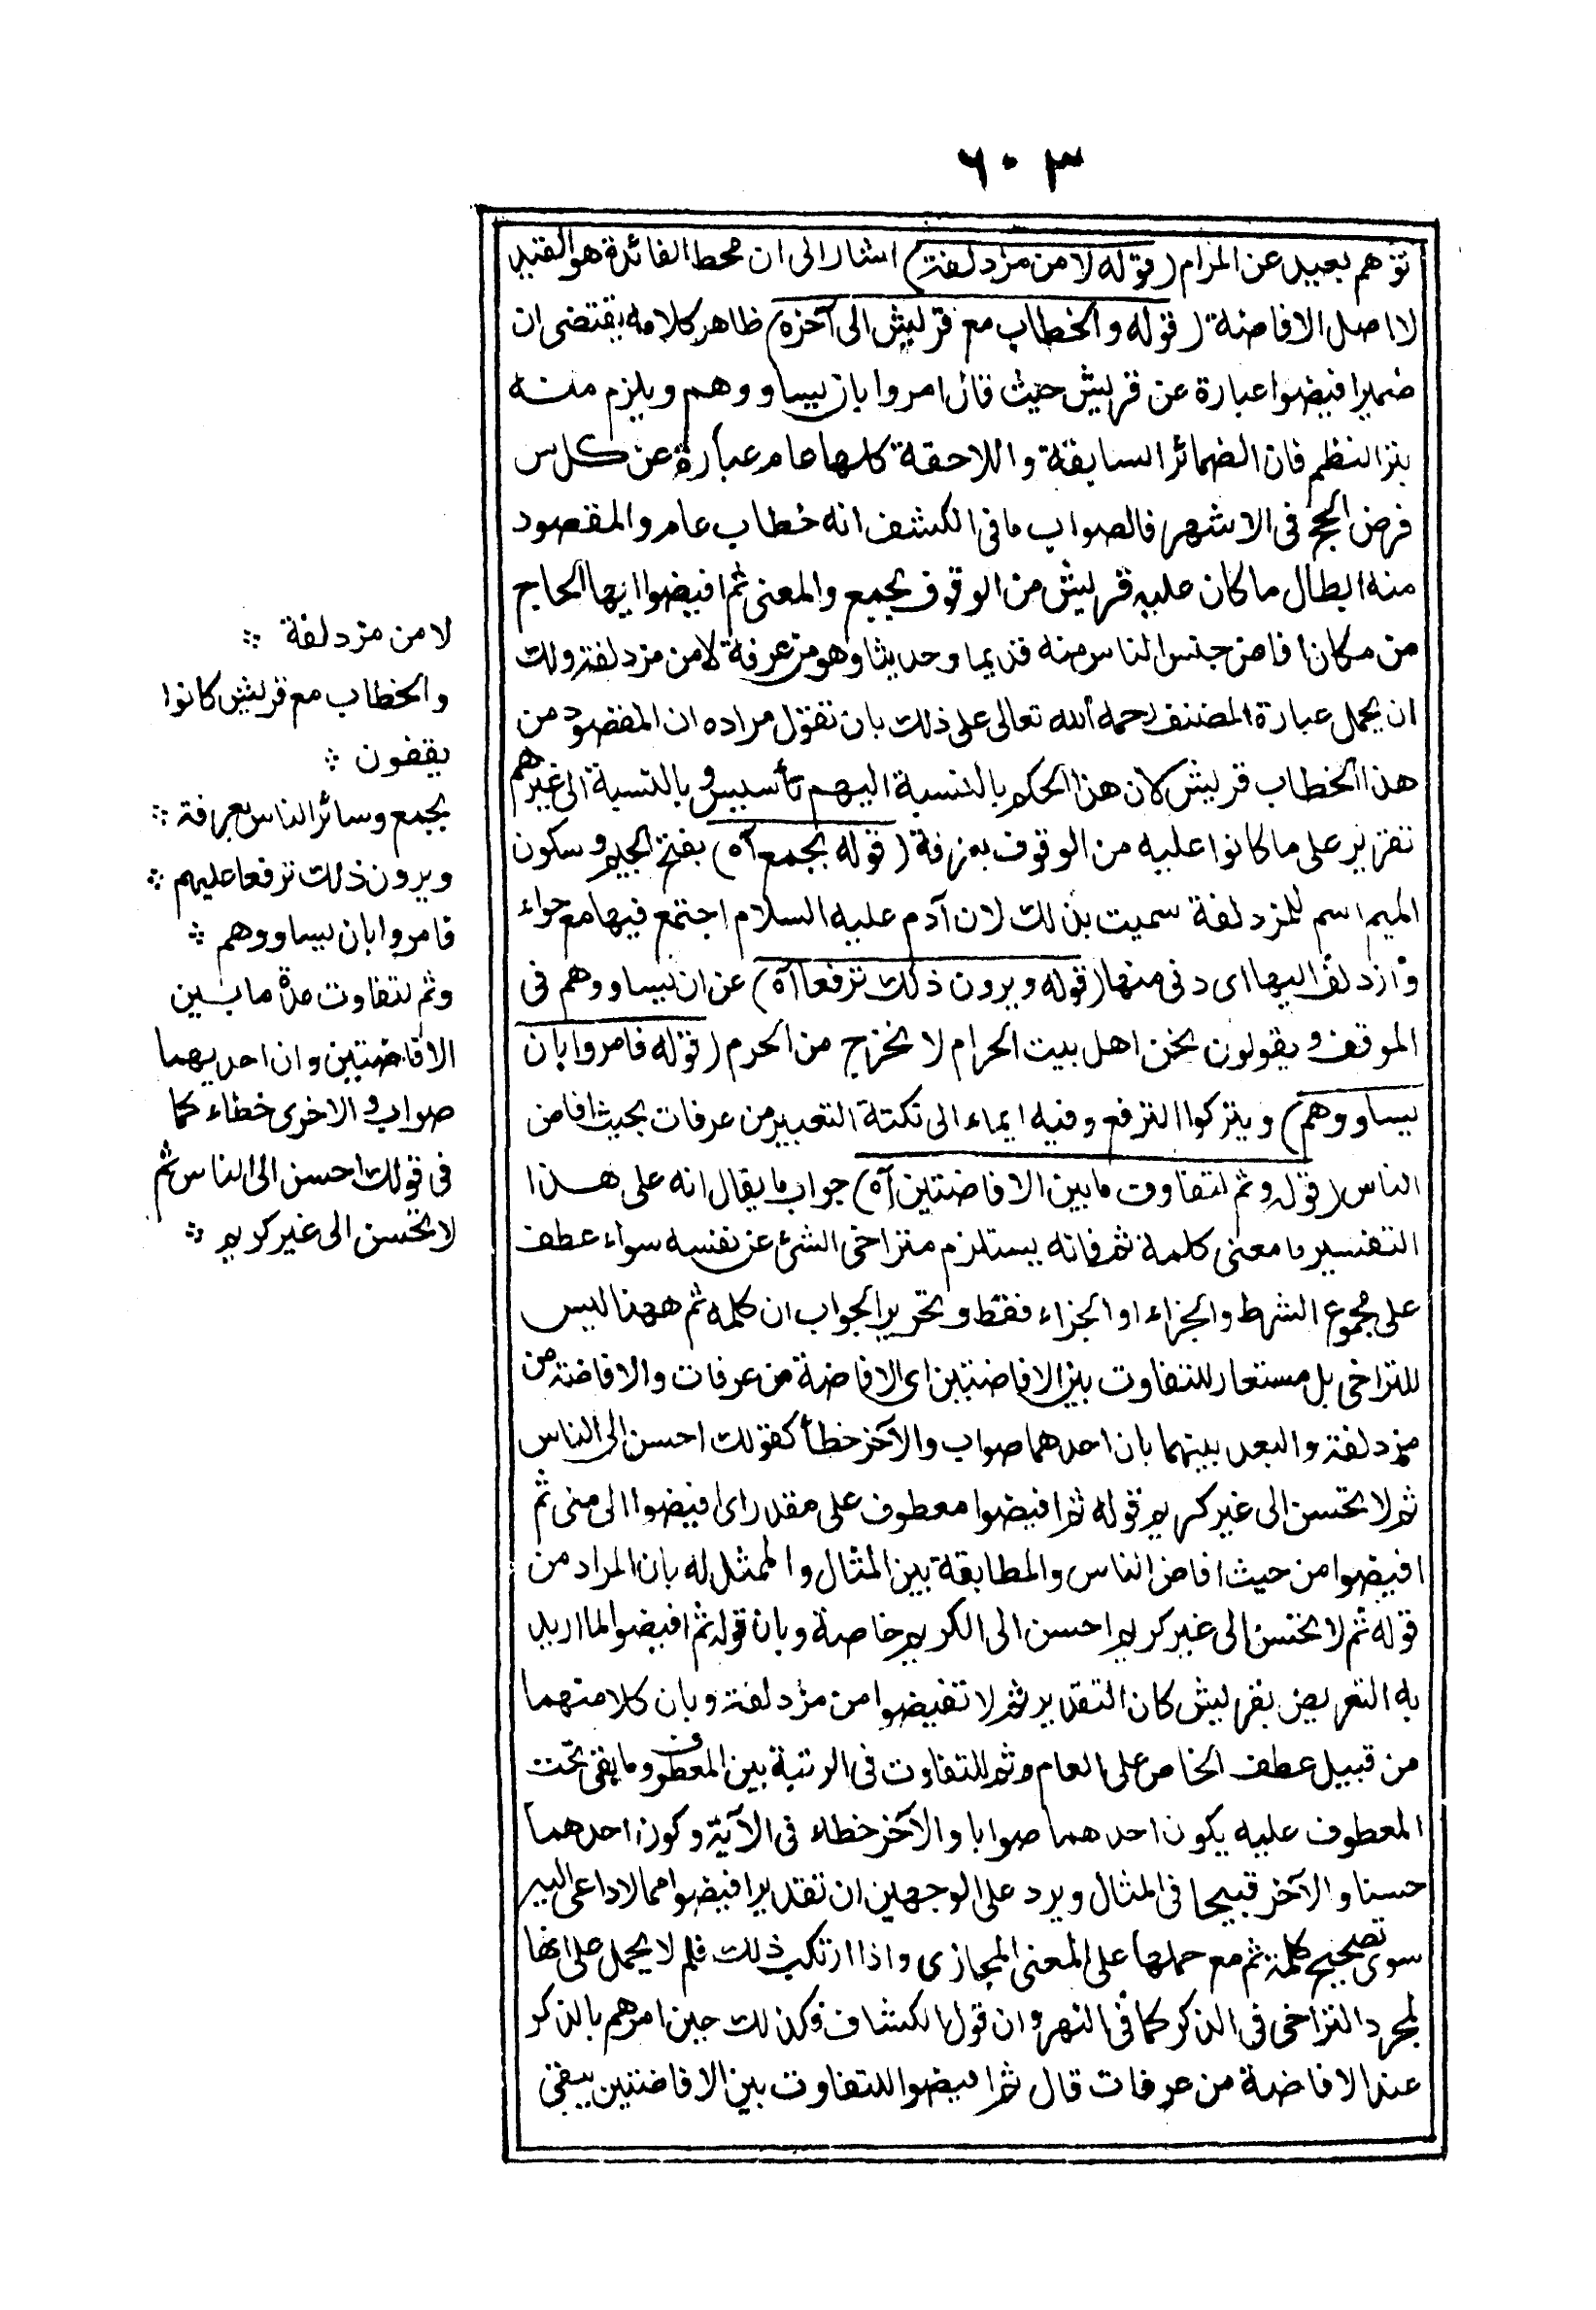 ٦٠٣
توهم بعيد عن المرام (قوله لا من مزدلفة) اشار الى ان محط الفائدة هو القيد
لا اصل الافاضة (قوله والخطاب مع قريش الى آخره) ظاهر كلامه يقتضى ان
ضمير افيضوا عبارة عن قريش حيث قال امروا بان يساووهم ويلزم منه
بتر النظم فان الضمائر السابقة واللاحقة كلها عام عبارة عن كل س
فرض الحج فى الاشهر فالصواب ما فى الكشف انه خطاب عام والمقصود
منه ابطال ما كان عليه قريش من الوقوف بجمع والمعنى ثم افيضوا ايها الحاج
من مكان افاض جنس الناس منه قديما وحديثا وهو من عرفة لا من مزدلفة ولك
ان يحمل عبارة المصنف رحمه الله تعالى على ذلك بان تقول مراده ان المقصود من
هذا الخطاب قريش لان هذا الحكم بالنسبة اليهم تأسيس و بالنسبة الى غيرهم
تقرير على ما كانوا عليه من الوقوف بعرفة (قوله بجمع آه) بفتح الجيم وسكون
الميم اسم للمزدلفة سميت بذلك لان آدم عليه السلام اجتمع فيها مع حواء
وازدلف اليها اى دنى منها (قوله ويرون ذلك ترفعا آه) عن ان يساووهم فى
الموقف ويقولون نحن اهل بيت الحرام لا نخرج من الحرم (قوله فامروا بان
يساووهم) ويتركوا الترفع وفيه ايماء الى نكتة التعبير من عرفات بحيث افاض
الناس (قوله وثم لتفاوت ما بين الافاضتين آه) جواب ما يقال انه على هذا
التفسير ما معنى كلمة ثم فانه يستلزم متراخى الشئ عن نفسه سواء عطف
على مجموع الشرط والجزاء او الجزاء فقط وتحرير الجواب ان كلمه ثم ههنا ليس
للتراخى بل مستعار للتفاوت بين الافاضتين اى الافاضة من عرفات والافاضة من
مزدلفة والبعد بينهما بان احدهما صواب والآخر خطأ كقولك احسن الى الناس
ثم لا تحسن الى غير كريم قوله ثم افيضوا معطوف على مقدر اى افيضوا الى منى ثم
افيضوا من حيث افاض الناس والمطابقة بين المثال والممثل له بان المراد من
قوله ثم لا تحسن الى غير كريم احسن الى الكريم خاصة وبان قوله ثم افيضوا لما اريد
به التعريض بقريش كان التقدير ثم لا تفيضوا من مزدلفة وبان كلا منهما
من قبيل عطف الخاص على العام وثم للتفاوت فى الرتبة بين المعطوف وما بقى تحت
المعطوف عليه يكون احدهما صوابا والآخر خطاء فى الآية وكون احدهما
حسنا والآخر قبيحا فى المثال ويرد على الوجهين ان تقدير افيضوا مما لا داعى اليه
سوى تصحيح كلمة ثم مع حملها على المعنى المجازى واذا ارتكب ذلك فلم لا يحمل على انها
لمجرد التراخى فى الذكر كما فى النهر وان قول الكشاف وكذلك حين امرهم بالذكر
عند الافاضة من عرفات قال ثم افيضوا للتفاوت بين الافاضتين يبقى
لا من مزدلفة ؞
والخطاب مع قريش كانوا
يقفون ؞
بجمع وسائر الناس بعرفة ؞
ويرون ذلك ترفعا عليهم ؞
فامروا بان يساووهم ؞
وثم لتفاوت مدة ما بين
الافاضتين وان احديهما
صواب والاخرى خطاء كما
فى قولك احسن الى الناس ثم
لا تحسن الى غير كريم ؞